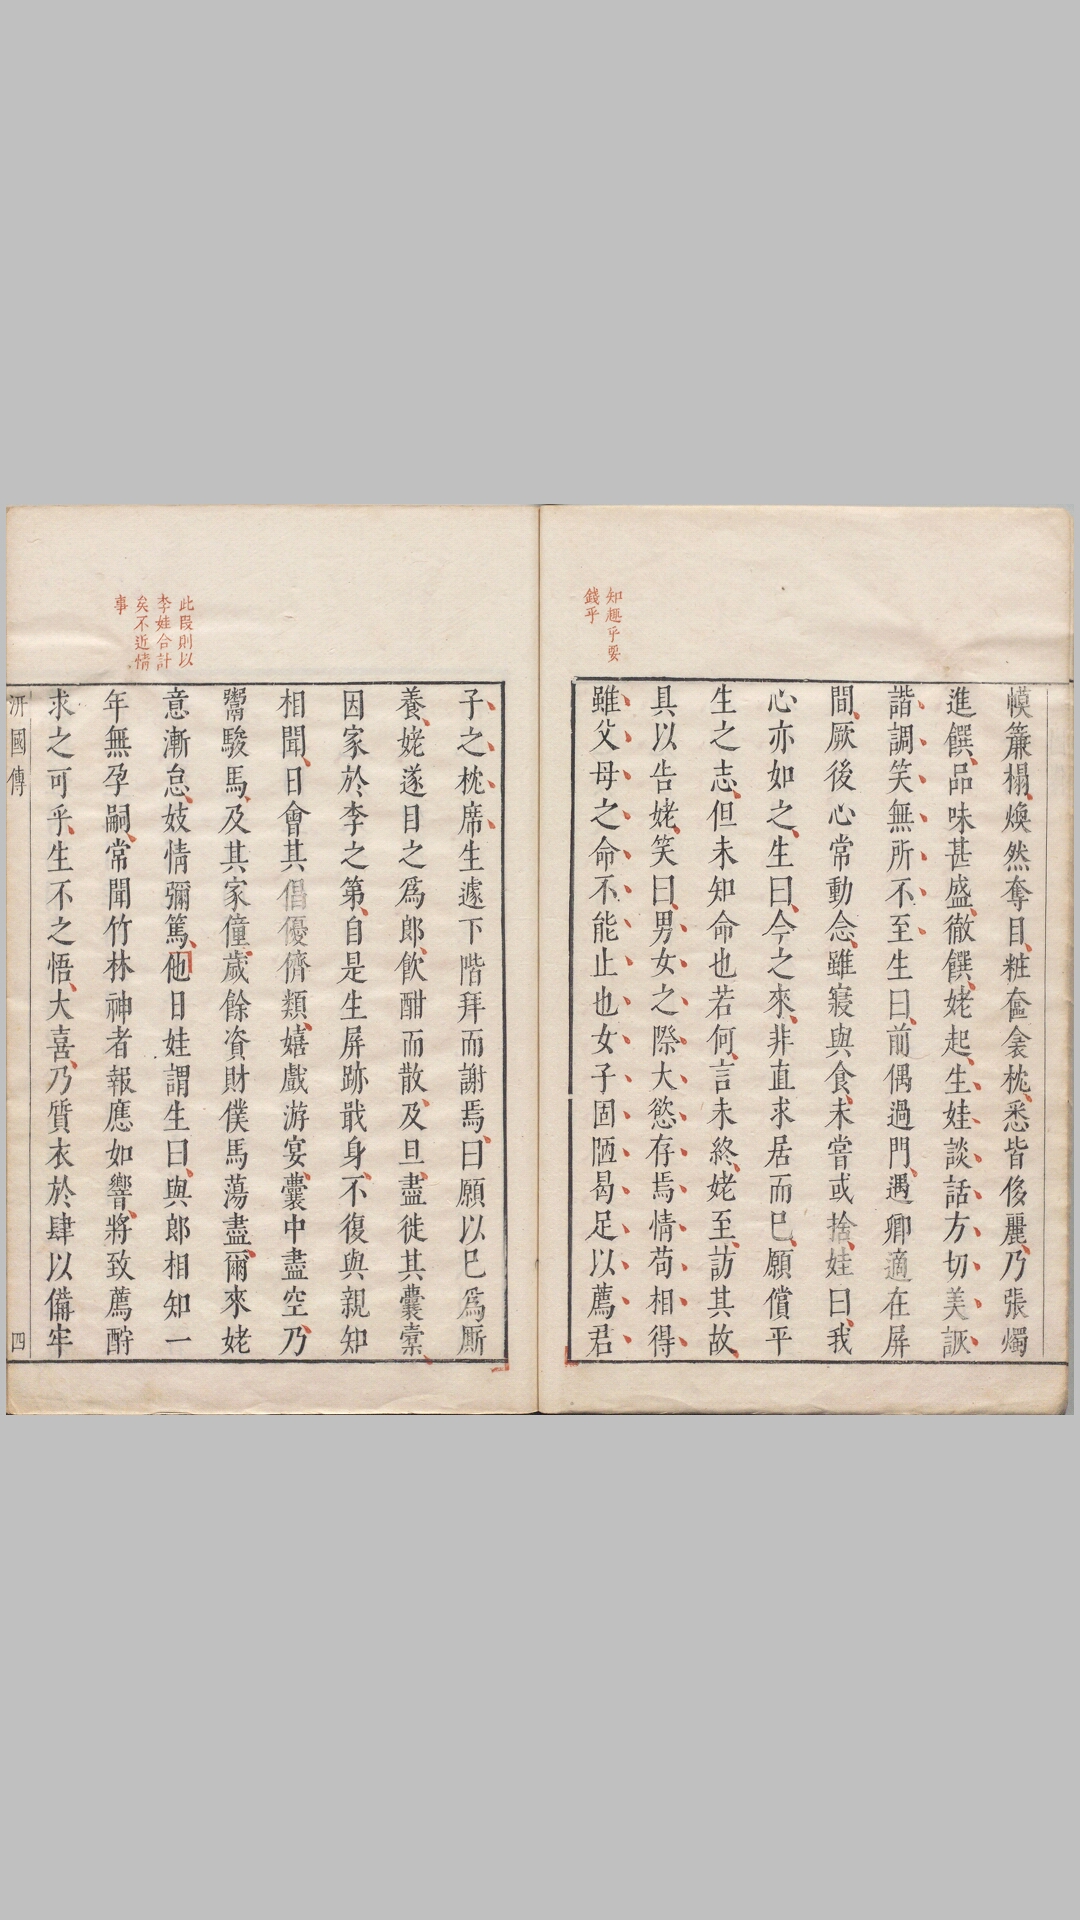 知趣乎要
錢乎
幙簾榻煥然奪目粧奩衾枕悉皆侈麗乃張燭
進饌品味甚盛徹饌姥起生娃談話方切美詼
諧調笑無所不至生曰前偶過門遇卿適在屏
間厥後心常動念雖寢與食未嘗或捨娃曰我
心亦如之生曰今之來非直求居而已願償平
生之志但未知命也若何言未終姥至訪其故
具以告姥笑曰男女之際大慾存焉情苟相得
雖父母之命不能止也女子固陋曷足以薦君
此段則以
李娃合計
矣不近情
事
子之枕席生遽下階拜而謝焉曰願以巳爲厮
養姥遂目之爲郎飲酣而散及旦盡徙其囊橐
因家於李之第自是生屏跡戢身不復與親知
相聞日會其倡優儕類嬉戲游宴囊中盡空乃
鬻駿馬及其家僮歲餘資財僕馬蕩盡爾來姥
意漸怠妓情彌篤他日娃謂生曰與郎相知一
年無孕嗣常聞竹林神者報應如響將致薦酹
求之可乎生不之悟大喜乃質衣於肆以備牢
汧國傳
四